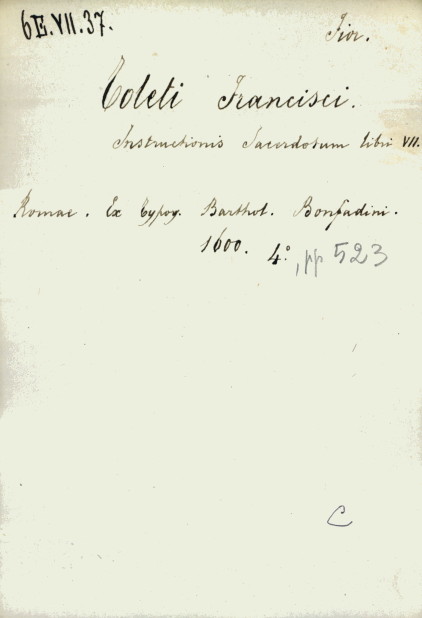 6E.VII.37.
Fior.
Toleti Francisci.
Instructionis Sacerdotum libri VII.
Romae. Ex Typog. Barthol. Bonfadini.
1600. 4.° , pp 523
C